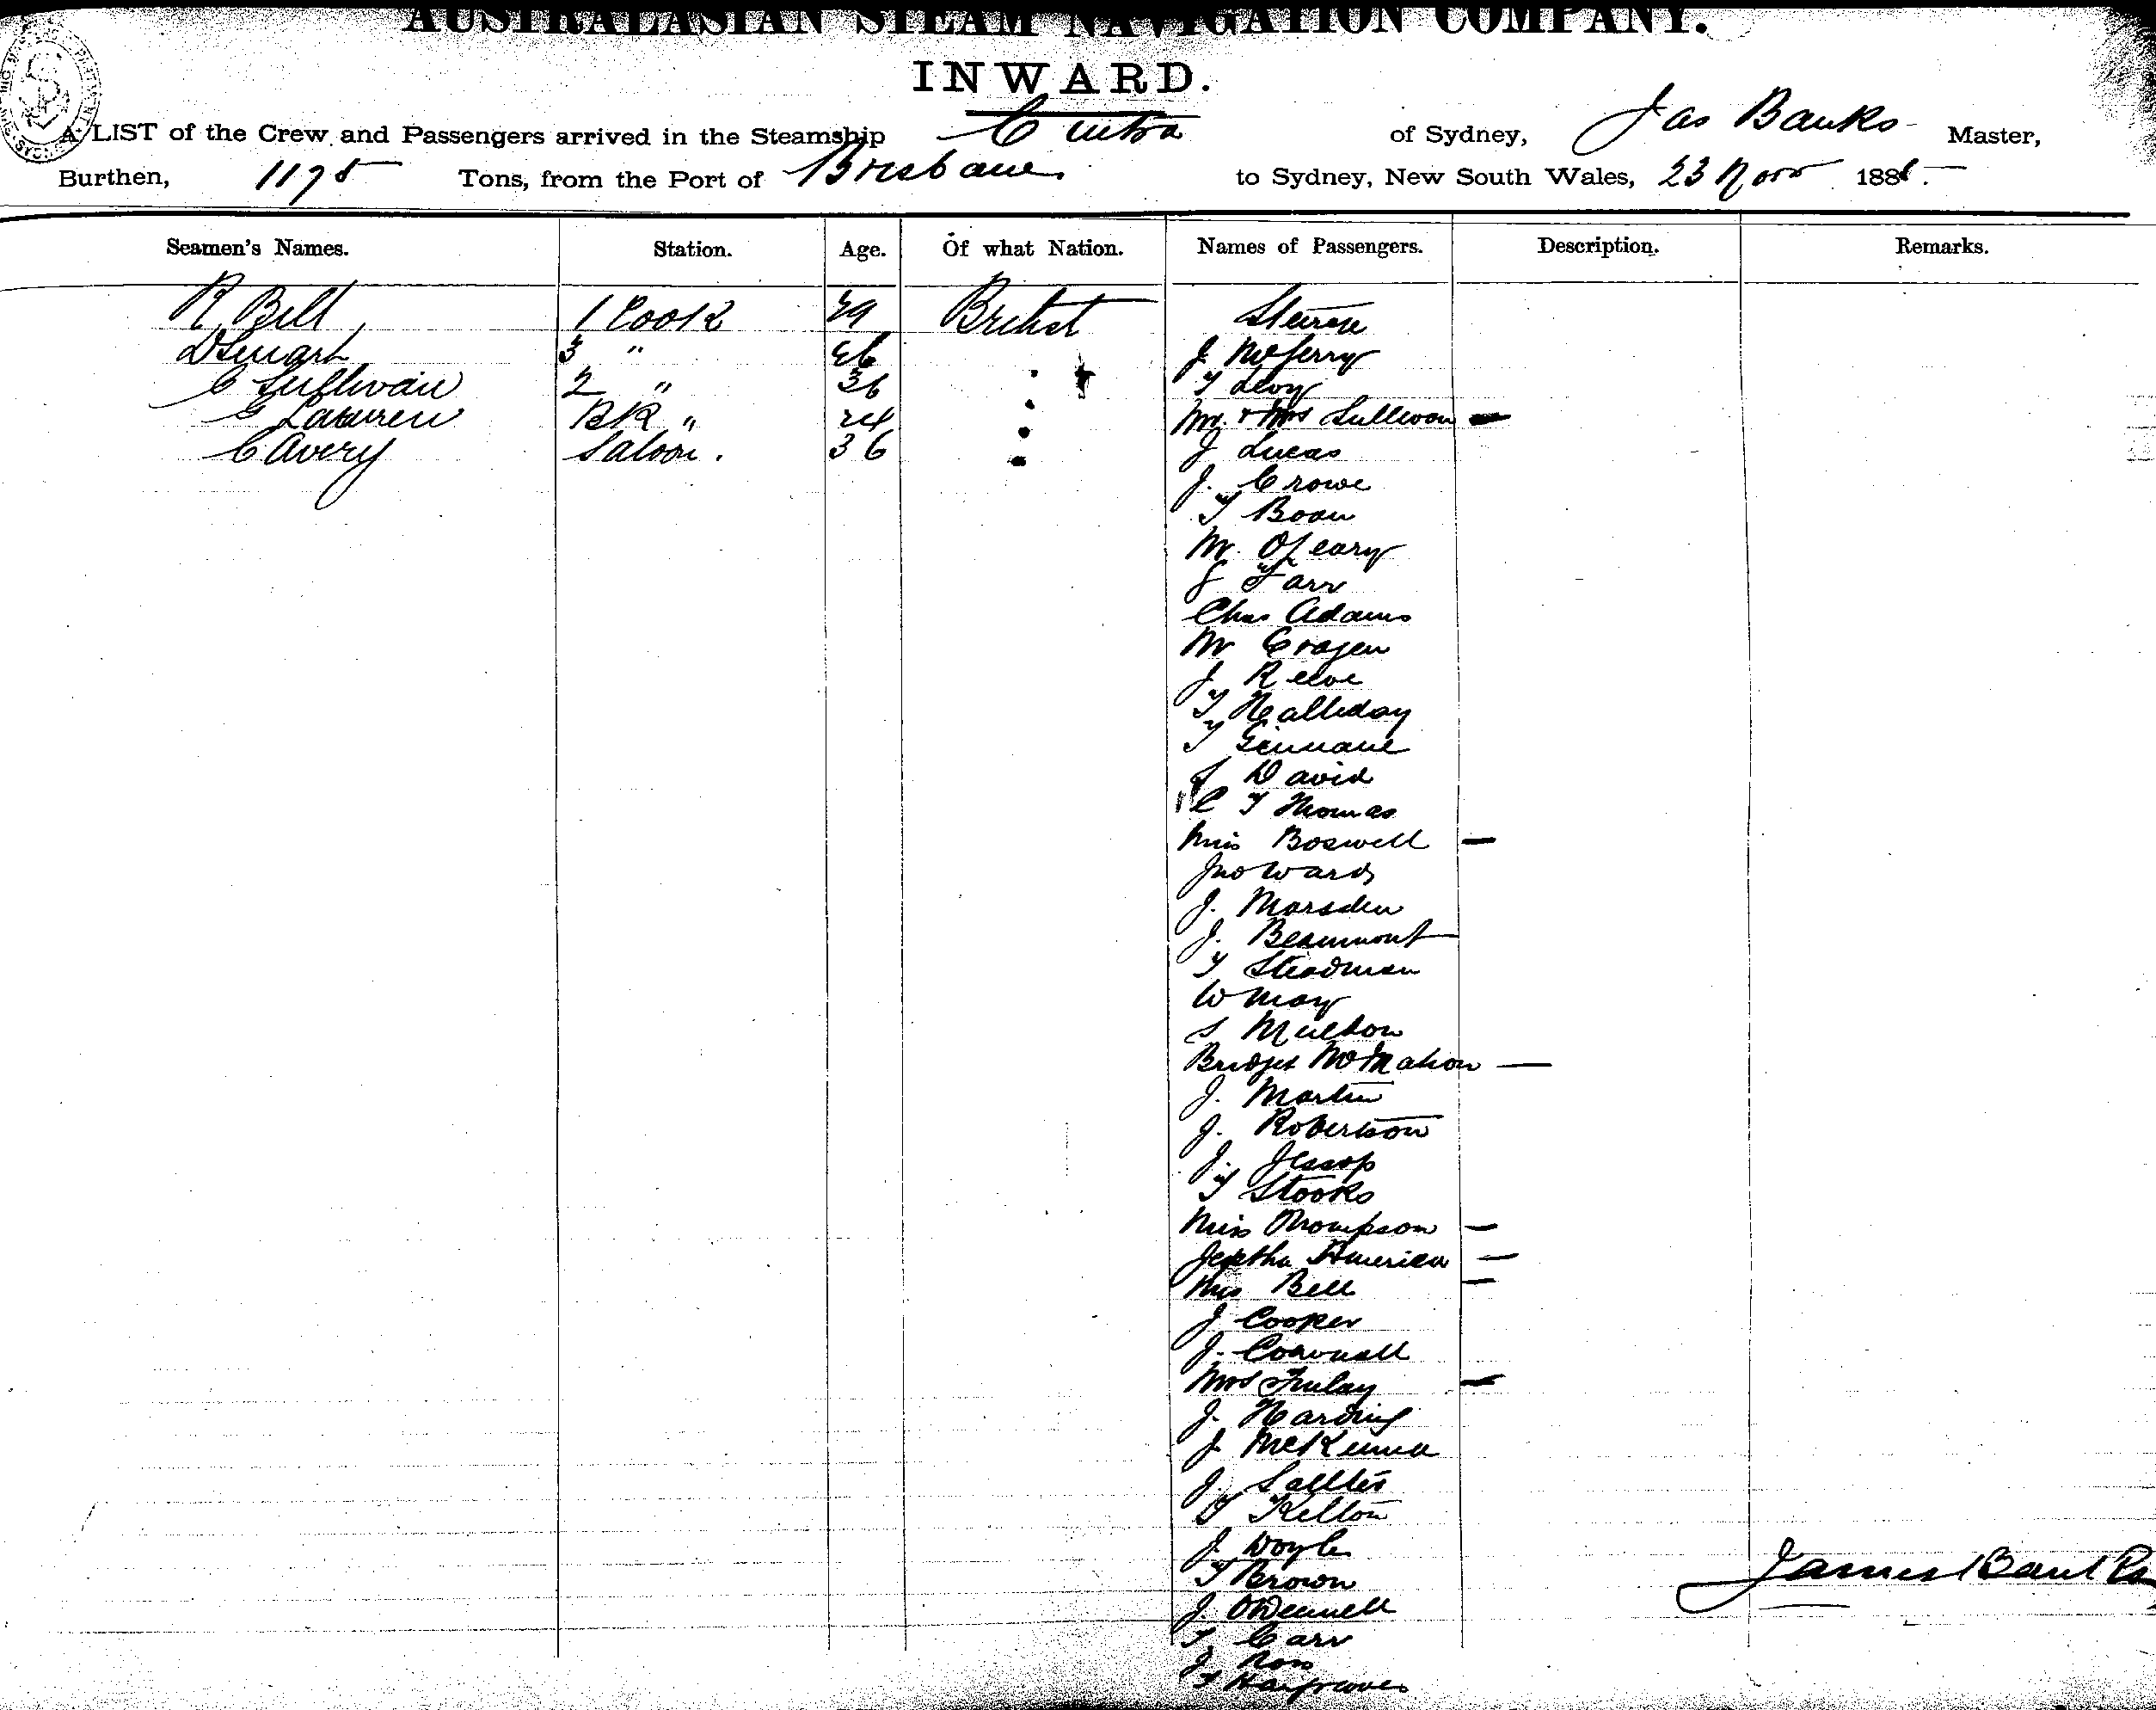 AUSTRALASIAN STEAM NAVIGATION COMPANY.
INWARD.
A LIST of the Crew and Passengers arrived in the Steamship Cintra of Sydney, Jas Banks Master,
Burthen, 1175 Tons, from the Port of Brisbane to Sydney, New South Wales, 23 Novr 188
Seamen's Names. Station. Age. Of what Nation. Names of Passengers. Description. Remarks.
R Bell 1 Cook 29 British
3 " J.
C Sullivan 2 " 36 T Levy
BK " 24 Mr. & Mrs Sullivan —
C Avery Saloon. 36 J Lucas
J. Crowe
T Boan
M. O'Leary
J Farr
Chas Adams
M
J Reeve
T Halliday
T Ginnane
S David
C T Thomas
Miss Boswell —
Jno Ward
J. Marsden
J. Beaumont
T Steadman
W May
S
Bridget McMahon —
J. Martin
J. Robertson
J. Jessop
T Stooks
Miss Thompson —
—
Bell —
J Cooker
J.
Mrs Finlay —
J. Harding
J. McKenna
J.
T Kelton
J. Doyle
T Brown
J. O'Donnell
T. Carr
J. Ross
T Hargraves
James Banks